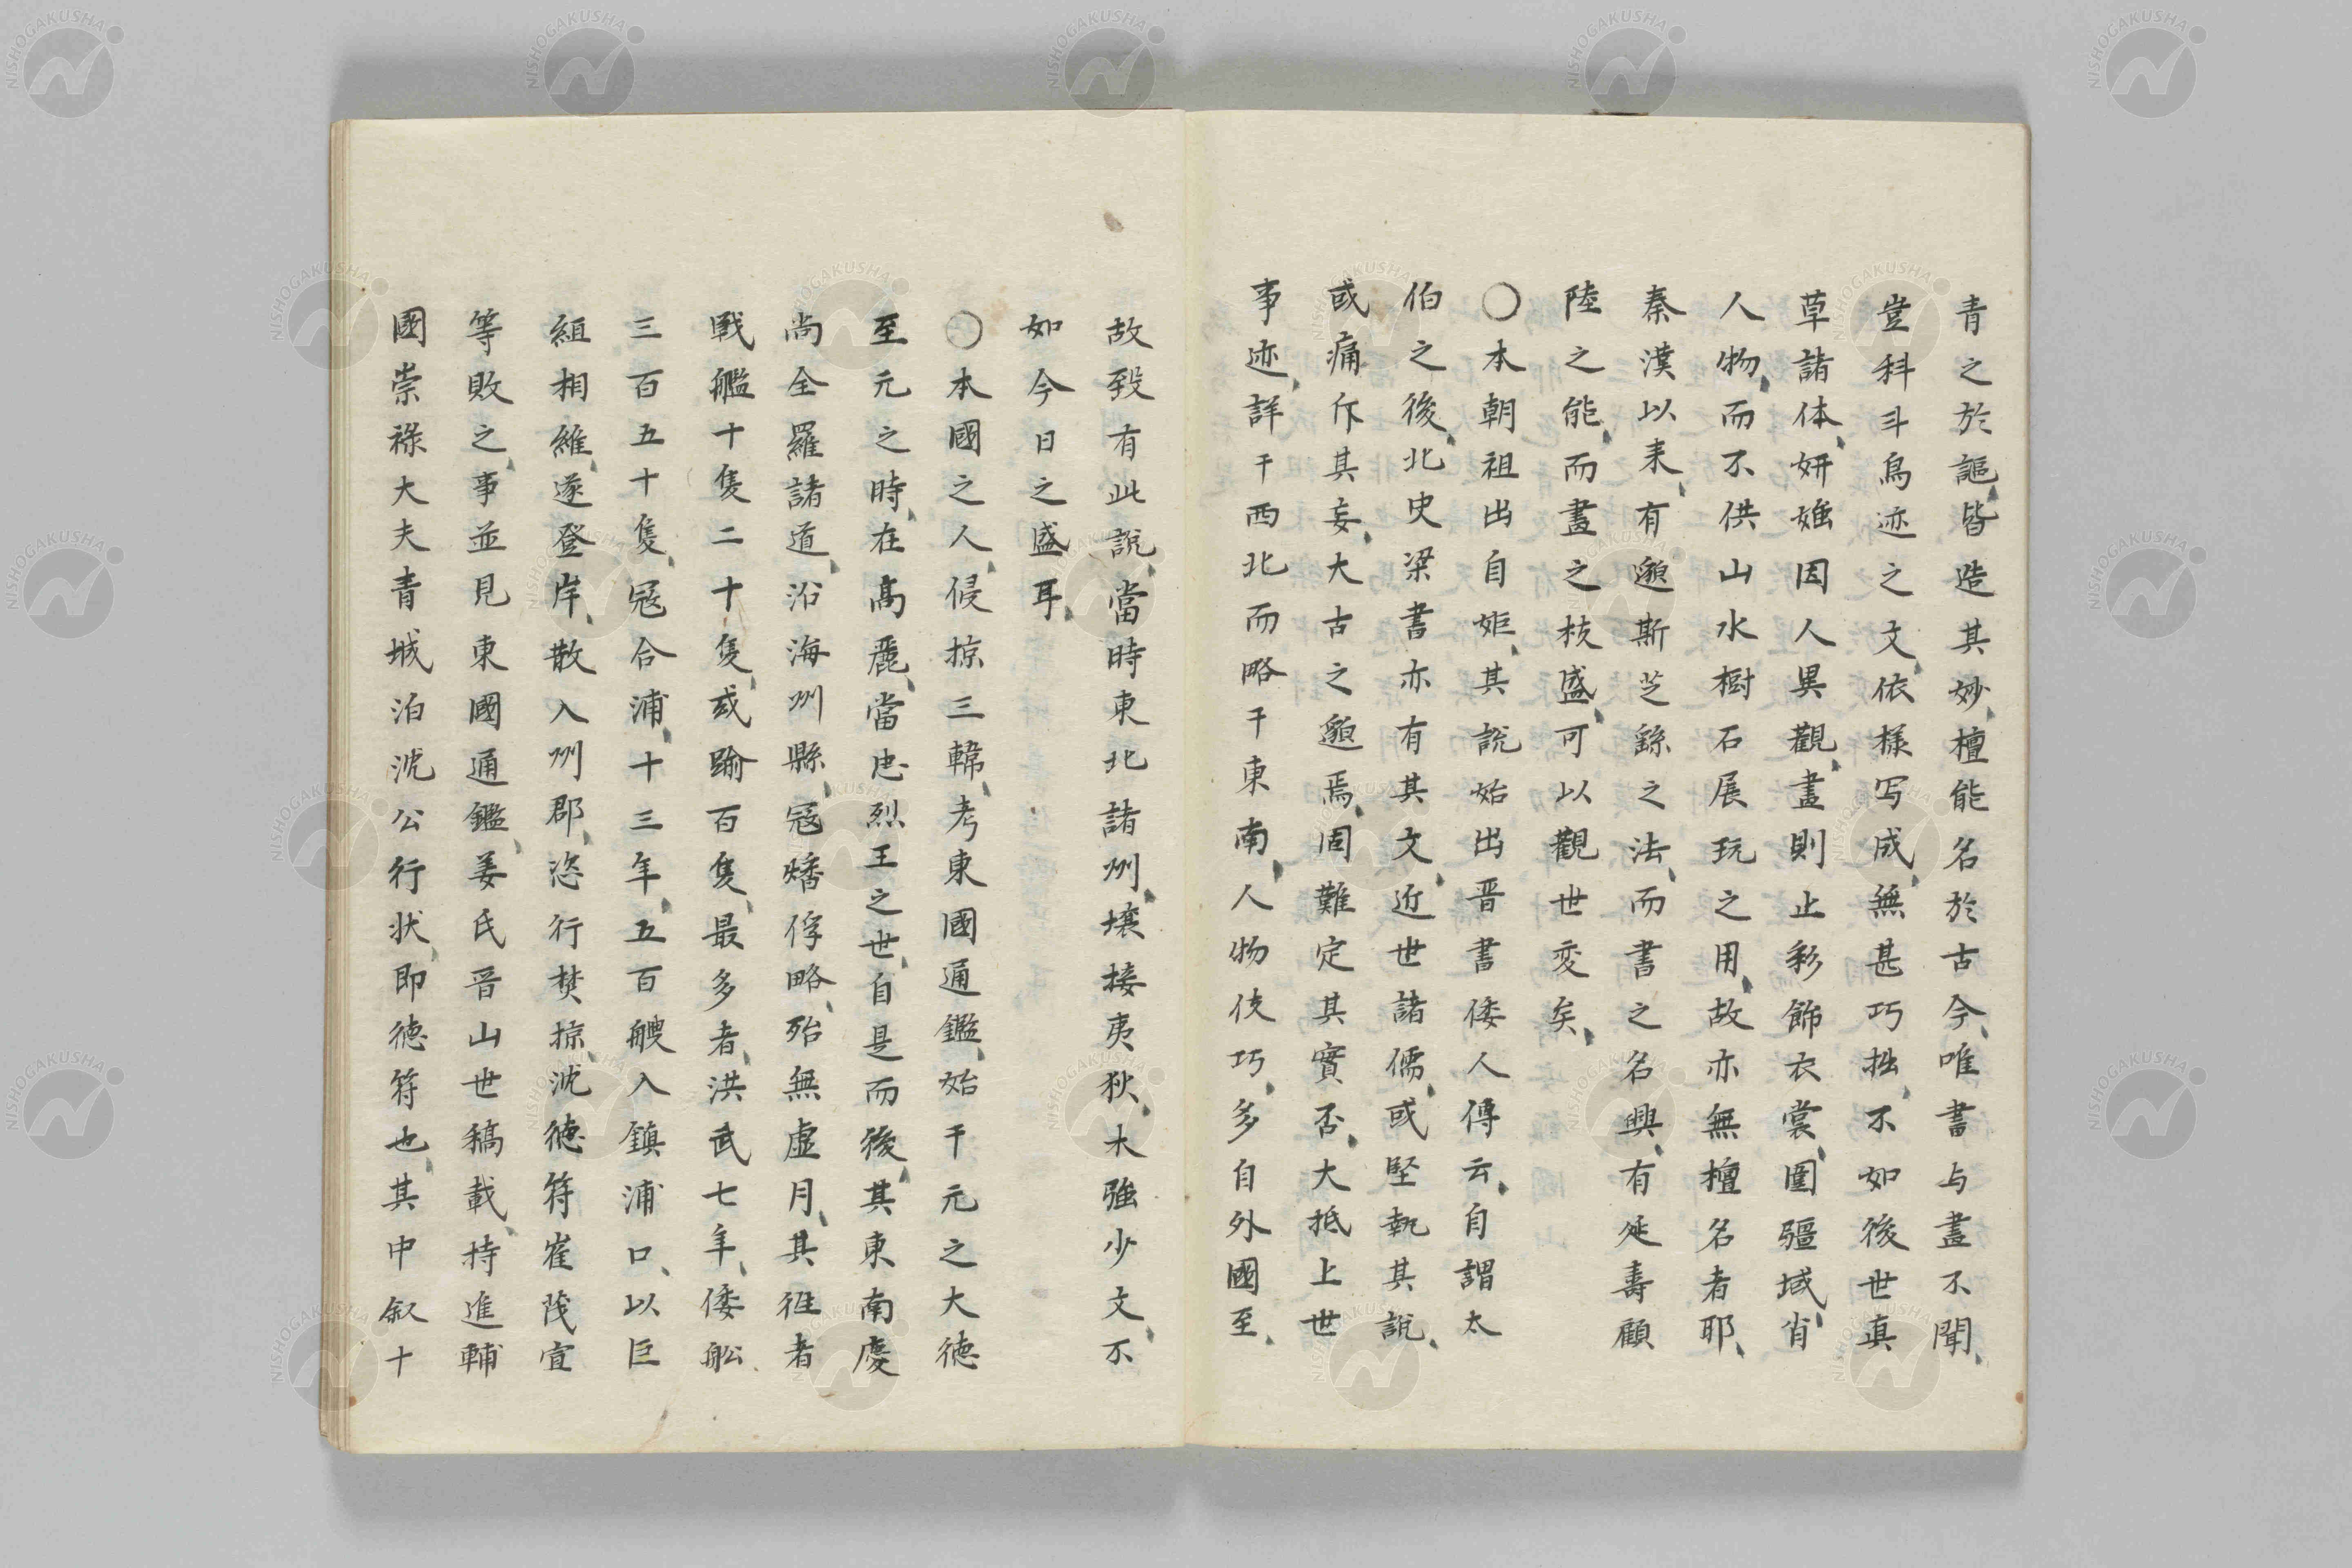 青之於謳、皆造其妙、檀能名於古今、唯書与畫不聞、
豈科斗鳥迹之文、依樣写成、無甚巧拙、不如後世真
草諸体、妍媸因人異觀、畫則止彩飾衣裳、圖疆域、肖
人物、而不供山水樹石展玩之用、故亦無檀名者耶、
秦漢以来、有邈斯芝繇之法、而書之名興、有延壽顧
陸之能、而畫之枝盛、可以觀世変矣、
〇本朝祖出自姫、其説始出晋書倭人傳云、自謂太
伯之後、北史梁書亦有其文、近世諸儒、或堅執其説、
或痛斥其妄、大古之邈焉、固難定其實否、大抵上世
事迹、詳于西北而略于東南、人物伎巧、多自外國至、
故致有此説、當時東北諸州、壌接夷狄、木強少文、不
如今日之盛耳、
〇本國之人、侵掠三韓、考東國通鑑、始于元之大徳
至元之時、在高麗、當忠烈王之世、自是而後、其東南慶
尚全羅諸道、沿海州縣、寇燔俘略、殆無虚月、其徃者
戦艦十隻二十隻、或踰百隻、最多者、洪武七年、倭舩
三百五十隻、寇合浦、十三年、五百艘入鎮浦口、以巨
組相維、遂登岸、散入州郡、恣行焚掠、沈徳符崔茂宣
等敗之、事並見東國通鑑、姜氏晋山世稿載、持進輔
國崇祿大夫青城泊沈公行状、即徳符也、其中叙十
NISHOGAKUSHA